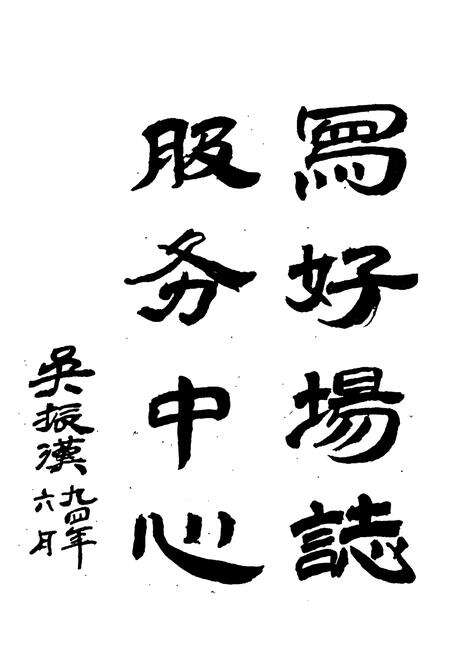 寫好場誌
服务中心
吳振漢
九四年
六月